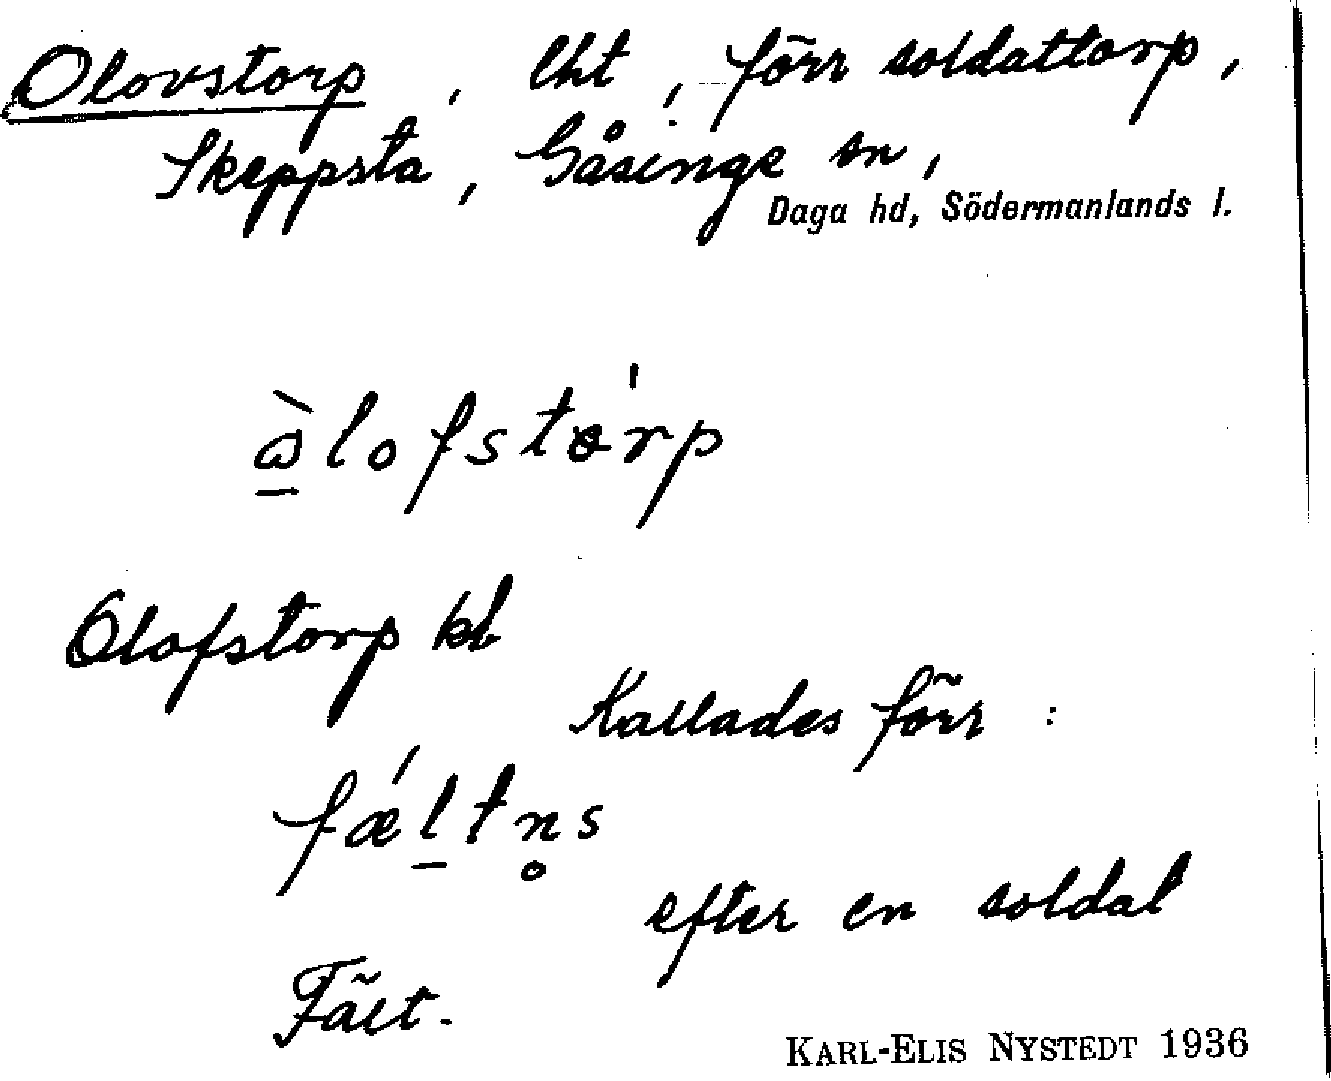 Olovstorp, lht, förr soldattorp,
Skeppsta, Gåsinge sn,
Daga hd, Södermanlands l.
ɷ̱̀lofstórp
Olofstorp kb
Kallades förr :
fǽḻtn̥s
efter en soldat
Fält.
KARL-ELIS NYSTEDT 1936